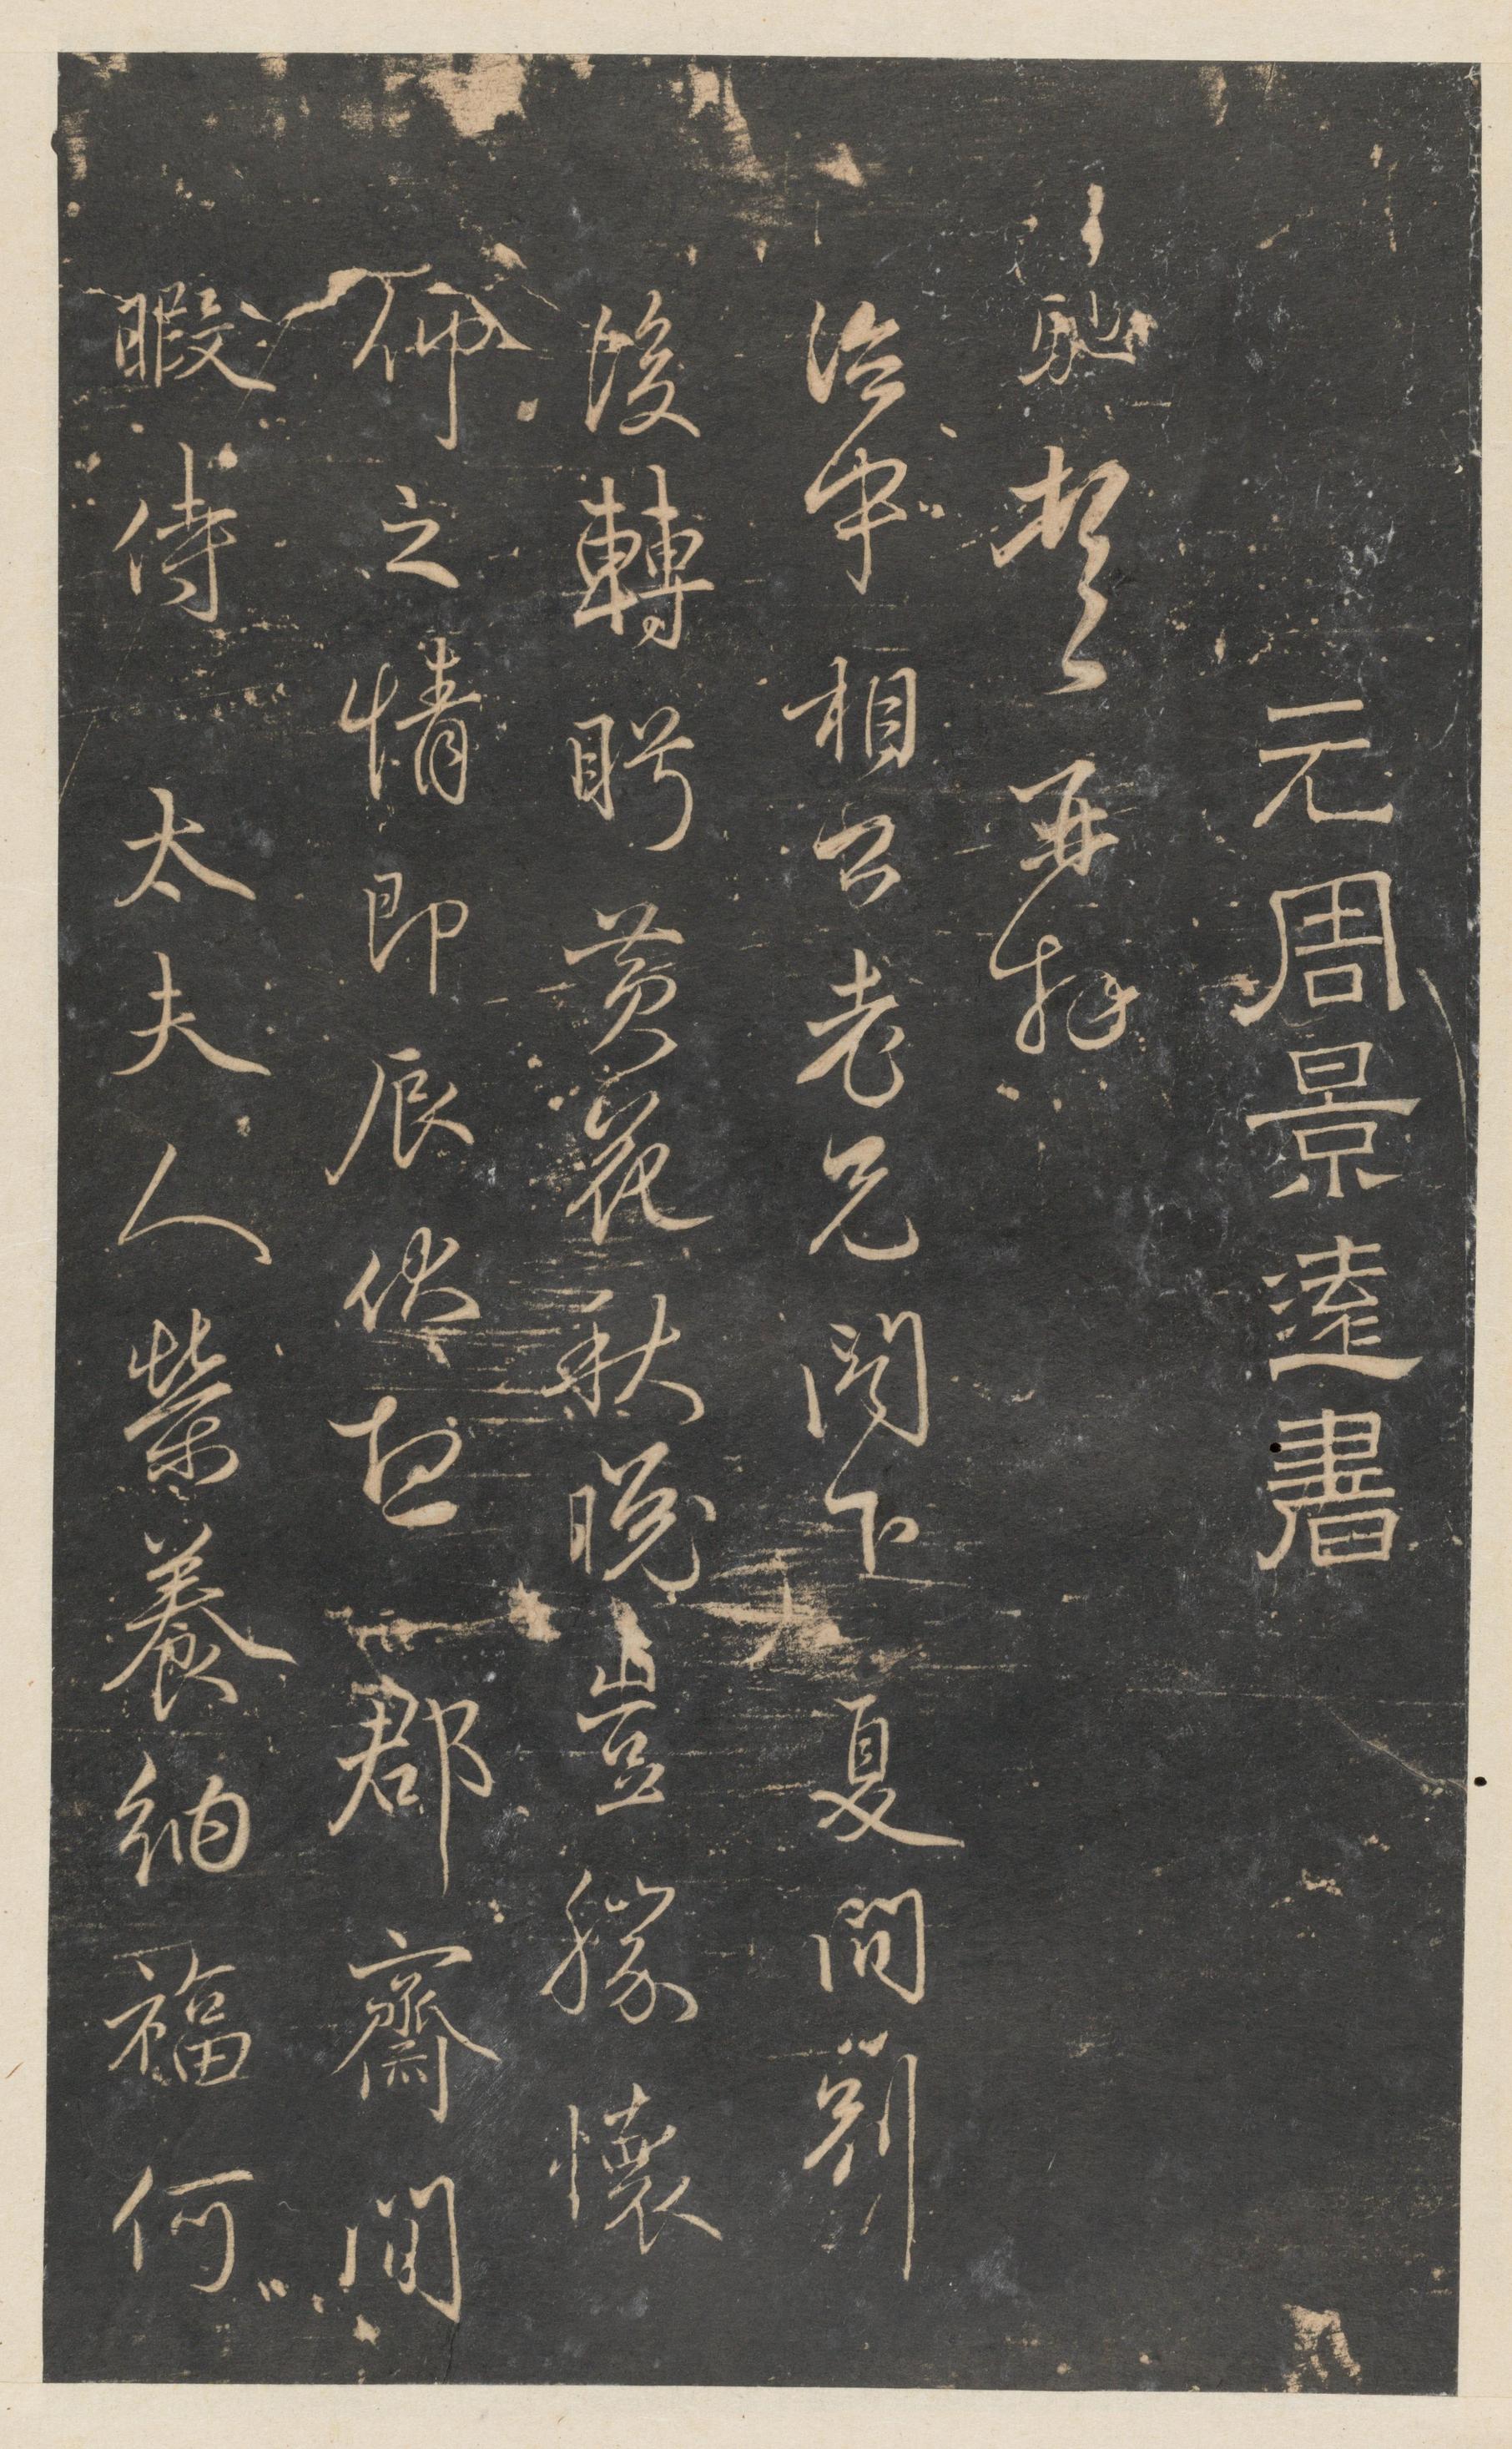 元周景遠書
馳頓首再拜
治中相公老兄閤下夏間別
後轉盼黃花秋晚豈勝懷
仰之情即辰想郡齋間
暇侍太夫人榮養納福何